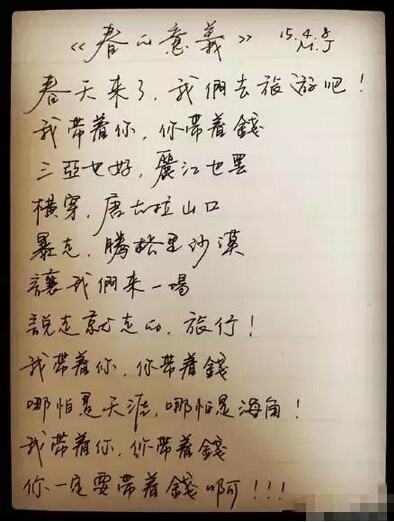 《春的意義》 15.4.8
M.J
春天来了，我們去旅游吧！
我带着你，你带着錢
三亞也好，麗江也罢
横穿，唐古拉山口
暴走，腾格里沙漠
讓我們来一場
説走就走的，旅行！
我带着你，你带着錢
哪怕是天涯，哪怕是海角！
我带着你，你带着錢
你一定要带着錢啊！！！